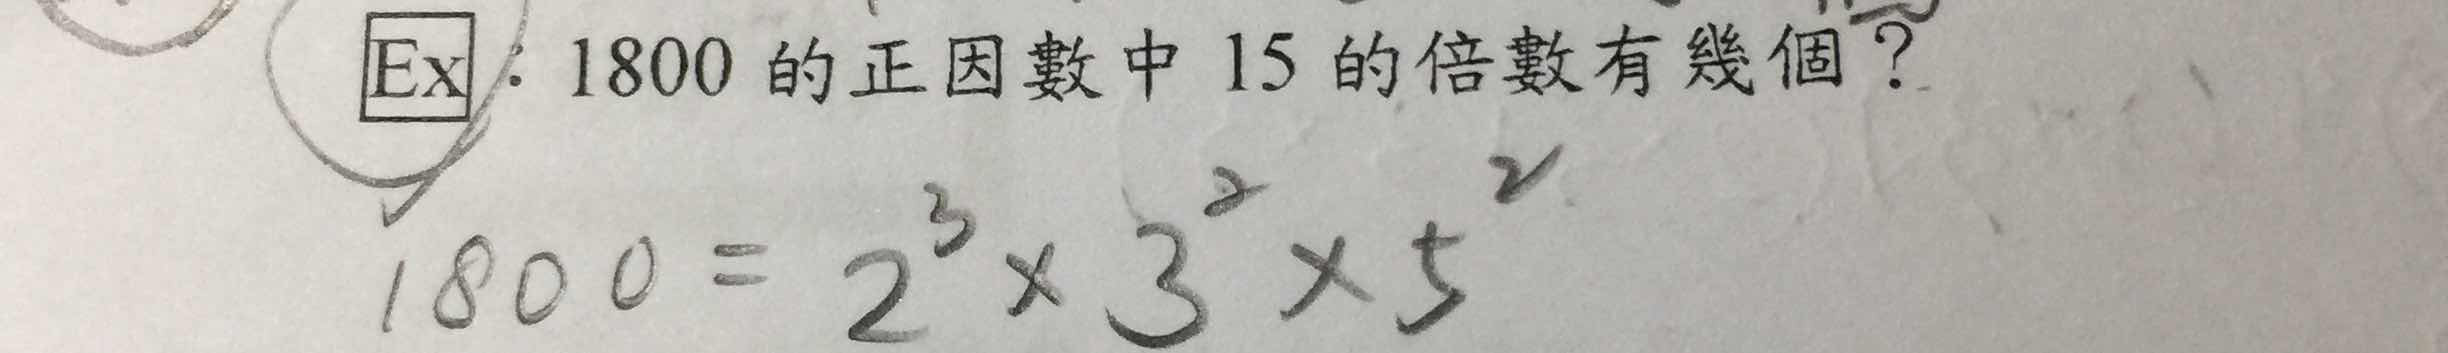 Ex：1800 的正因數中 15 的倍數有幾個？
1800 = 2³ × 3² × 5²